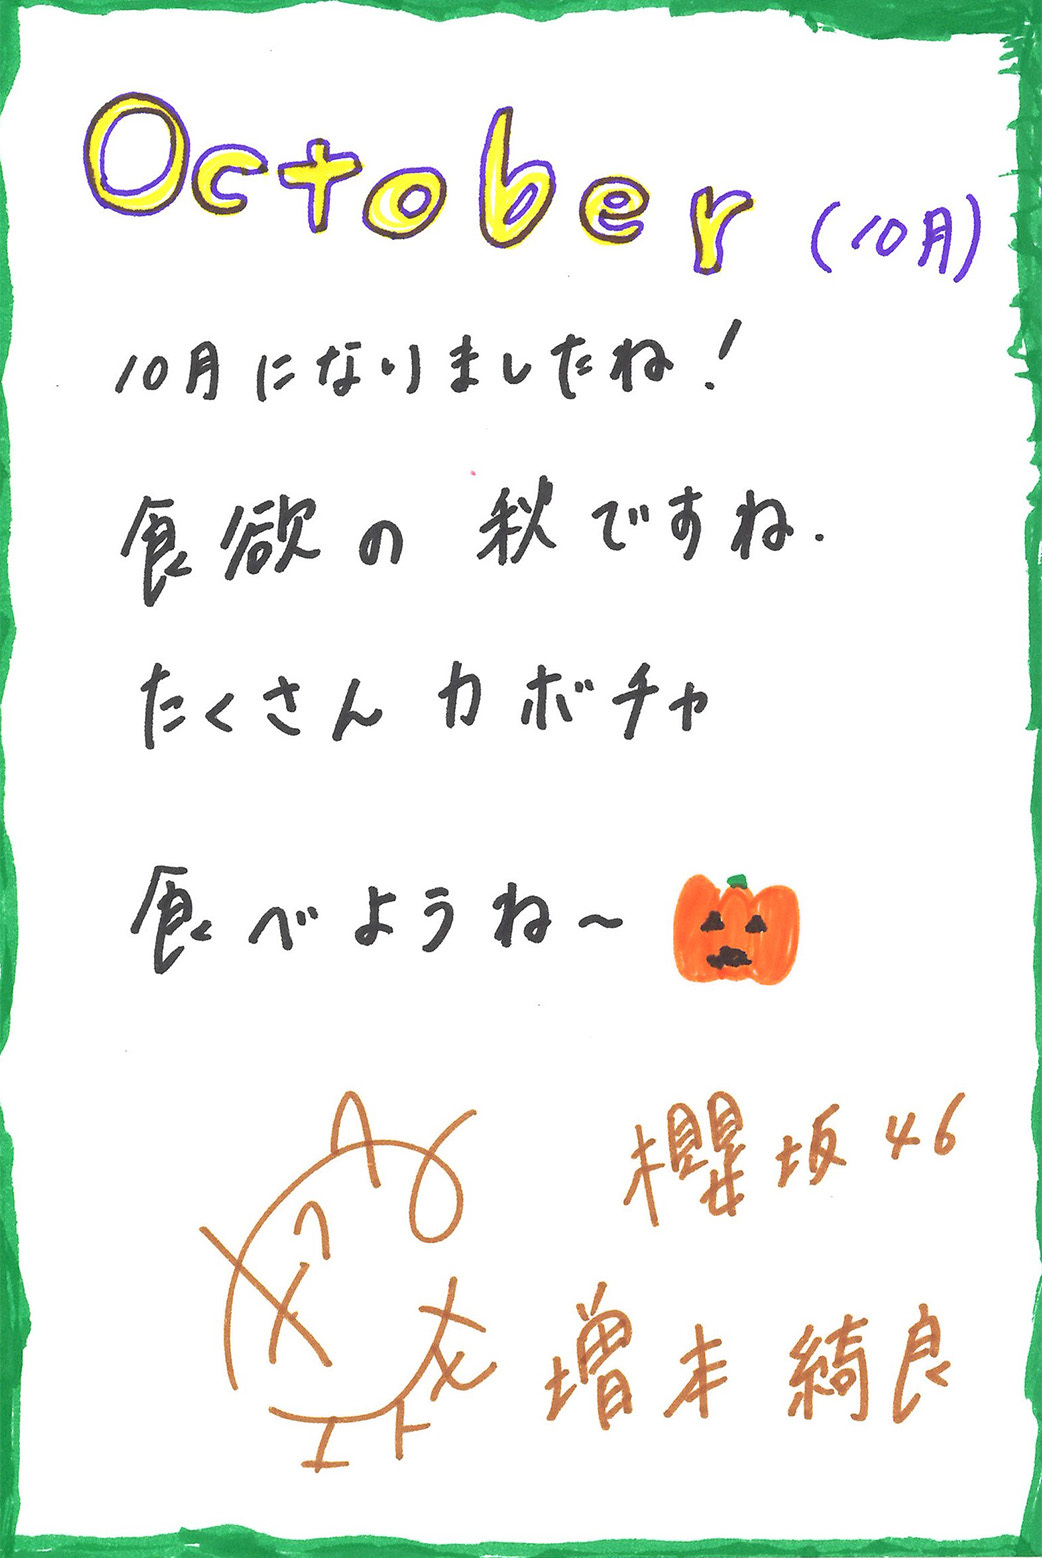 October (10月)
10月になりましたね!
食欲の 秋ですね.
たくさん カボチャ
食べようね~
櫻坂46
増本 綺良